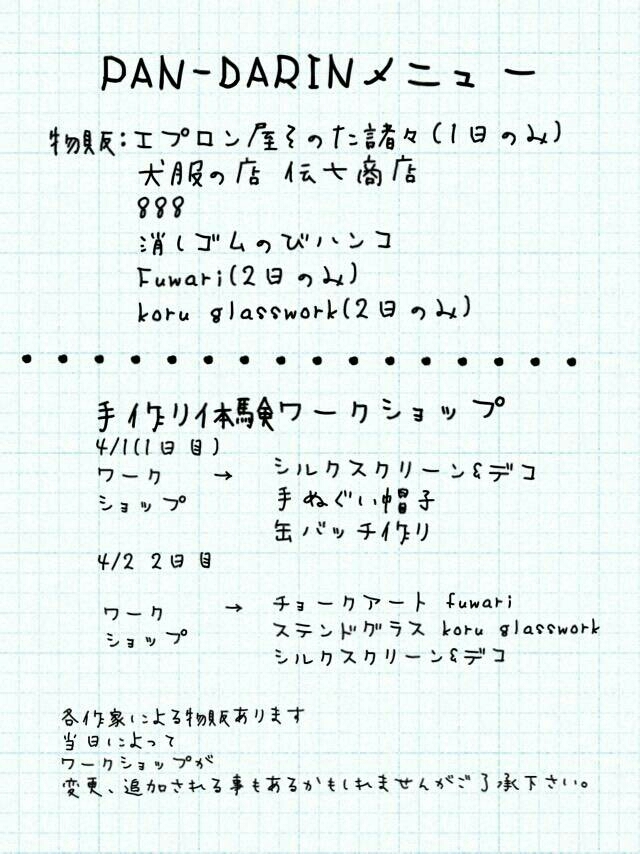 PAN-DARINメニュー
物販:エプロン屋そのた諸々(1日のみ)
犬服の店 伝七商店
888
消しゴムのびハンコ
Fuwari(2日のみ)
koru glasswork(2日のみ)
手作り体験ワークショップ
4/1(1日目)
ワーク → シルクスクリーン&デコ
ショップ 手ぬぐい帽子
缶バッチ作り
4/2 2日目
ワーク → チョークアート fuwari
ショップ ステンドグラス koru glasswork
シルクスクリーン&デコ
各作家による物販あります
当日によって
ワークショップが
変更、追加される事もあるかもしれませんがご了承下さい。